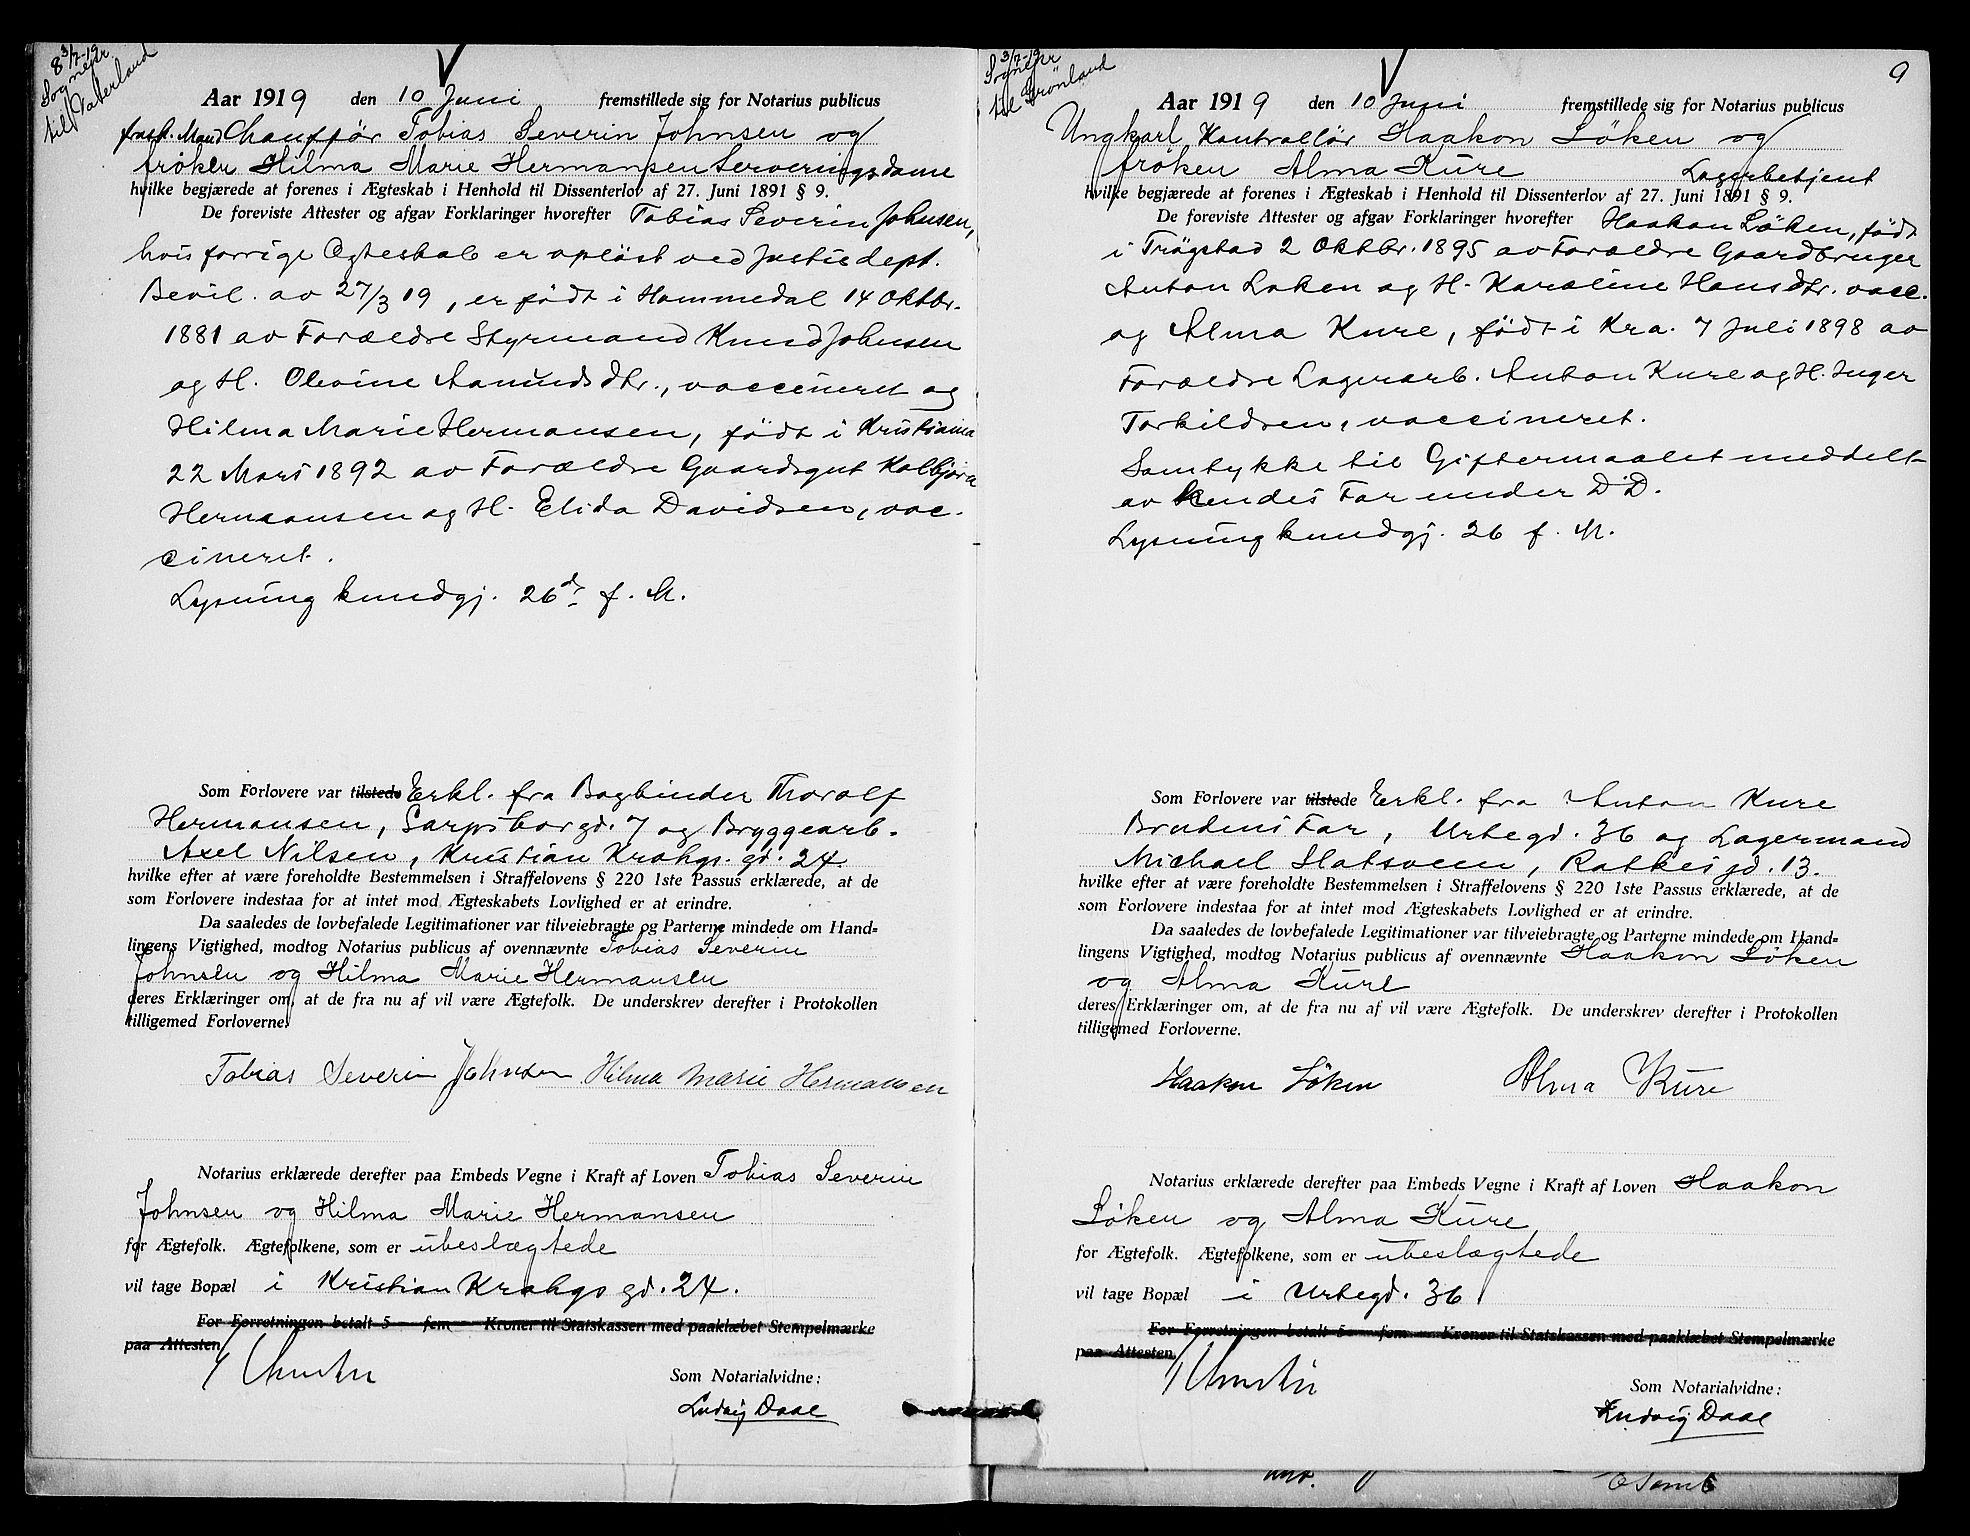 8 3/7-19
Sognepr.
til Vaterland
Aar 1919 den 10 Juni fremstillede sig for Notarius publicus
frask. Mand Chauffør Tobias Severin Johnsen og
frøken Hilma Marie Hermansen Serveringsdame
hvilke begjærede at forenes i Ægteskab i Henhold til Dissenterlov af 27. Juni 1891 § 9.
De foreviste Attester og afgav Forklaringer hvorefter Tobias Severin Johnsen,
hvis forrige Ægteskab er opløst ved Justisdept.
Bevil. av 27/3 19, er født i Hommedal 14 Oktbr.
1881 av Forældre Styrmand Knud Johnsen
og H. Olevine Aanundsdtr., vaccineret og
Hilma Marie Hermansen, født i Kristiania
22 Mars 1892 av Forældre Gaardsgut Kolbjørn
Hermansen og H. Elida Davidsen, vac-
cineret.
Lysning kundgj. 26d. f. M.
Som Forlovere var tilstede Erkl. fra Bogbinder Thorolf
Hermansen, Sarpsborggd. 7 og Bryggearb.
Axel Nilsen, Kristian Krohgs. gd. 24.
hvilke efter at være foreholdte Bestemmelsen i Straffelovens § 220 1ste Passus erklærede, at de
som Forlovere indestaa for at intet mod Ægteskabets Lovlighed er at erindre.
Da saaledes de lovbefalede Legitimationer var tilveiebragte og Parterne mindede om Hand=
lingens Vigtighed, modtog Notarius publicus af ovennævnte Tobias Severin
Johnsen og Hilma Marie Hermansen
deres Erklæringer om, at de fra nu af vil være Ægtefolk. De underskrev derefter i Protokollen
tilligemed Forloverne.
Tobias Severin Johnsen Hilma Marie Hermansen
Notarius erklærede derefter paa Embeds Vegne i Kraft af Loven Tobias Severin
Johnsen og Hilma Marie Hermansen
for Ægtefolk. Ægtefolkene, som er ubeslægtede
vil tage Bopæl i Kristian Krohgs gd. 24.
For Forretningen betalt 5 fem Kroner til Statskassen med paaklæbet Stempelmærke
paa Attesten
Som Notarialvidne:
Ludvig Daae
3/7-19
Sognepr
til Grønland
9
Aar 1919 den 10 Juni fremstillede sig for Notarius publicus
Ungkarl Kontrollør Haakon Løken og
frøken Alma Kure Lagerbetjent
hvilke begjærede at forenes i Ægteskab i Henhold til Dissenterlov af 27. Juni 1891 § 9.
De foreviste Attester og afgav Forklaringer hvorefter Haakon Løken, født
i Trøgstad 2 Oktbr. 1895 av Forældre Gaardbruger
Anton Løken og H. Karoline Hansdtr. vacc.
og Alma Kure, født i Kra. 7 Juli 1898 av
Forældre Lagerarb. Anton Kure og H. Inger
Torkildsen, vaccineret.
Samtykke til Giftermaalet meddelt
av hendes Far under D.D.
Lysning kundgj. 26 f. M.
Som Forlovere var tilstede Erkl. fra Anton Kure
Brudens Far, Urtegd. 36 og Lagermand
Michael Slatsveen, Ratkesgd. 13.
hvilke efter at være foreholdte Bestemmelsen i Straffelovens § 220 1ste Passus erklærede, at de
som Forlovere indestaa for at intet mod Ægteskabets Lovlighed er at erindre.
Da saaledes de lovbefalede Legitimationer var tilveiebragte og Parterne mindede om Hand=
lingens Vigtighed, modtog Notarius publicus af ovennævnte Haakon Løken
og Alma Kure
deres Erklæringer om, at de fra nu af vil være Ægtefolk. De underskrev derefter i Protokollen
tilligemed Forloverne.
Haakon Løken Alma Kure
Notarius erklærede derefter paa Embeds Vegne i Kraft af Loven Haakon
Løken og Alma Kure
for Ægtefolk. Ægtefolkene, som er ubeslægtede
vil tage Bopæl i Urtegd. 36
For Forretningen betalt 5 fem Kroner til Statskassen med paaklæbet Stempelmærke
paa Attesten.
Som Notarialvidne:
Ludvig Daae